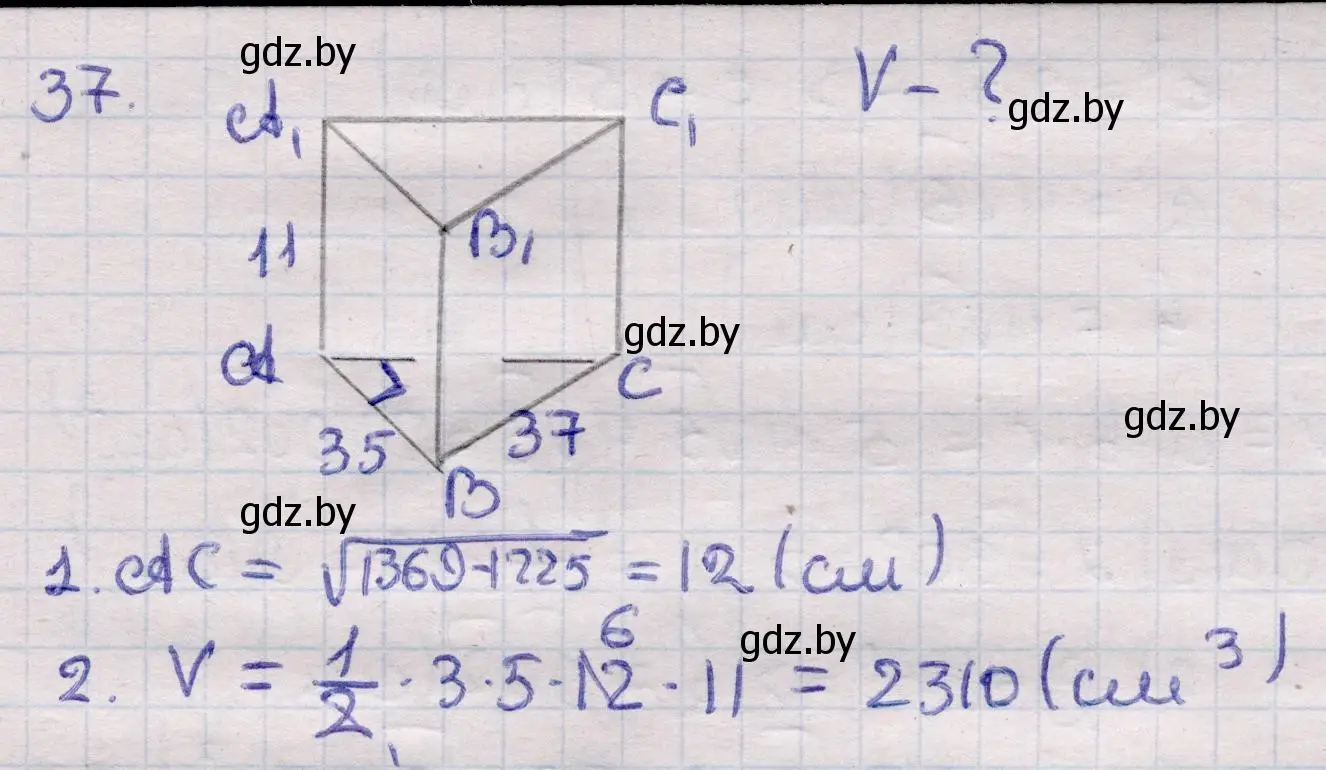 gdz.by
37.
A₁ C₁ V - ?
gdz.by
11 B₁
gdz.by
A C
gdz.by
35 37
B
gdz.by
1. AC = √1369-1225 = 12 (см)
6
gdz.by
2. V = 1/2 · 3 · 5 · 12 · 11 = 2310 (см³)
1